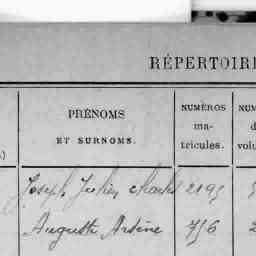 RÉPERTOIRE
PRÉNOMS
ET SURNOMS.
NUMÉROS
ma-
tricules.
Joseph Julien Charles 2195
Auguste Arsène 756